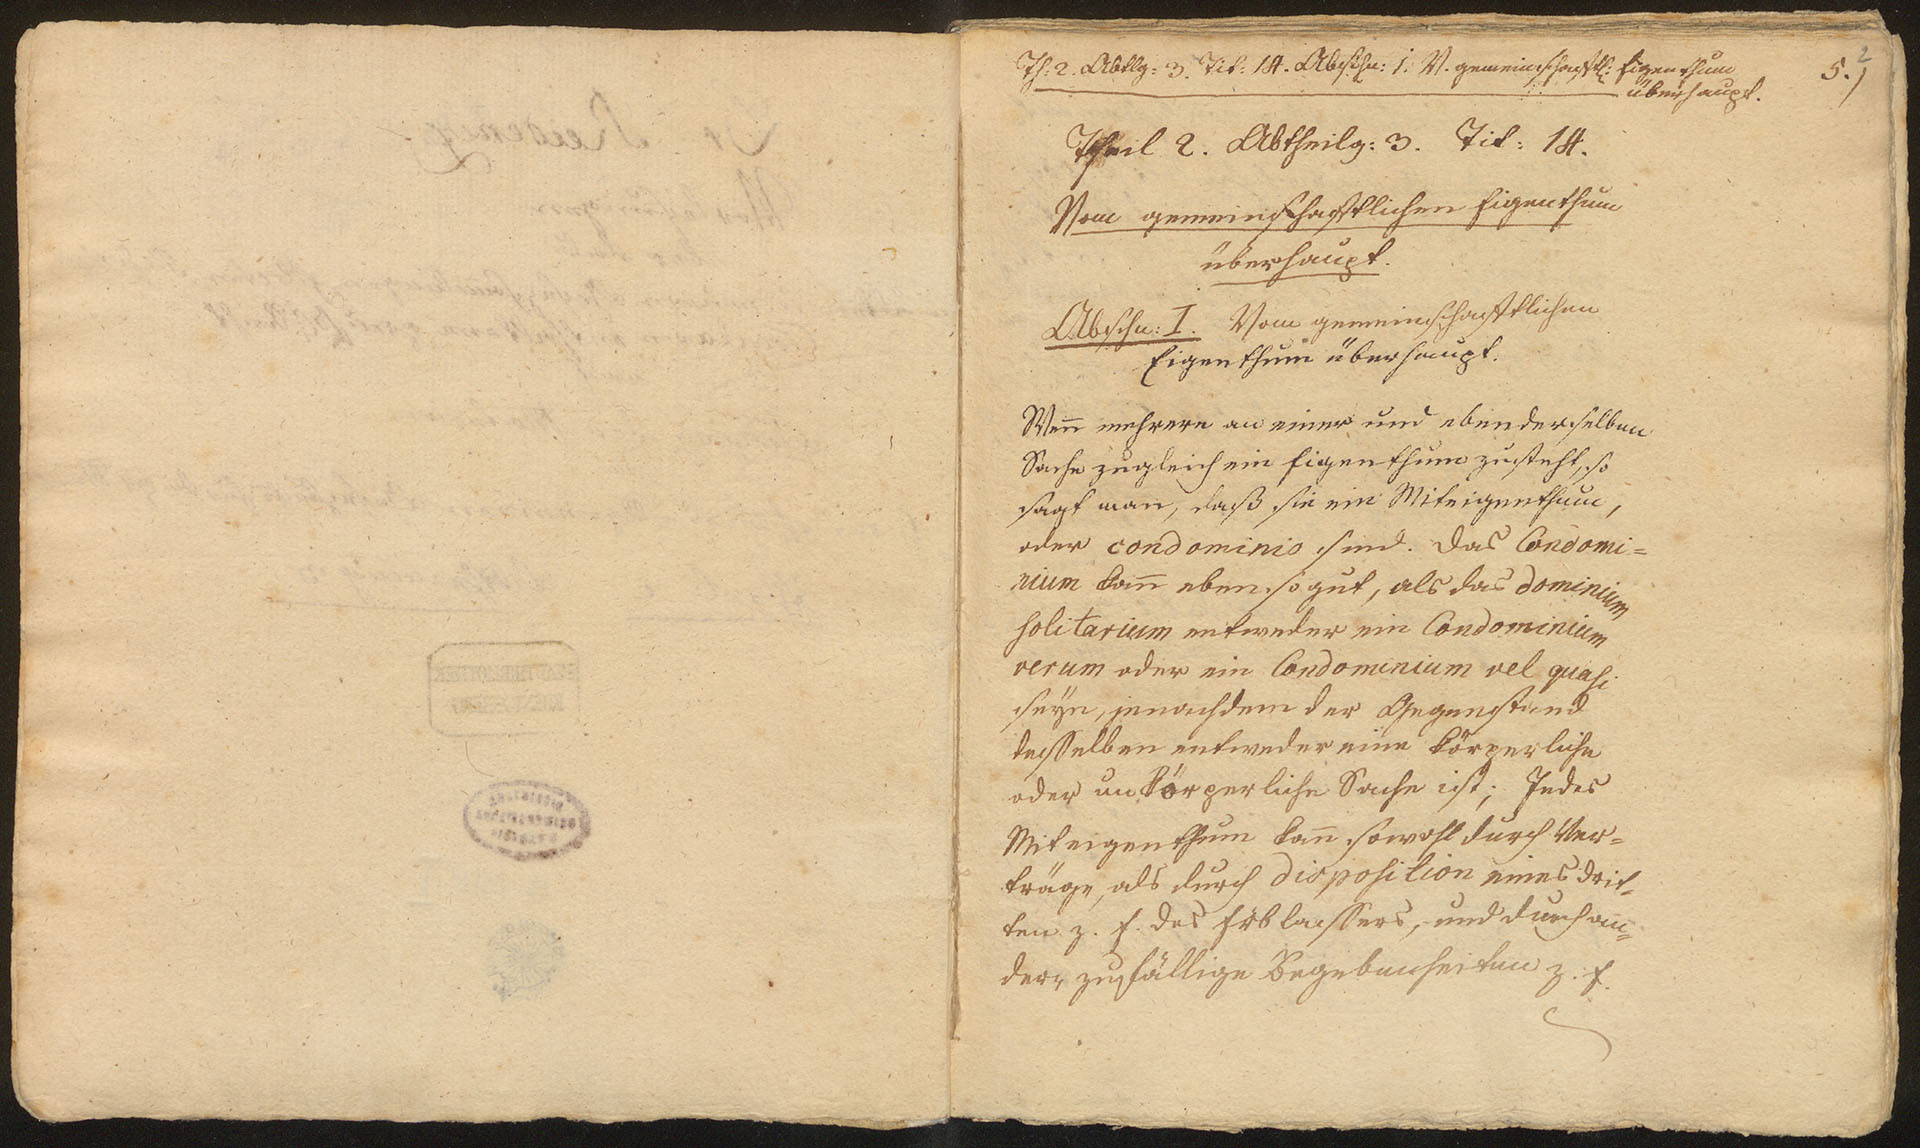 Th: 2. Abtlg: 3. Tit: 14. Abschn: 1. V. gemeinschaftl: Eigenthum
überhaupt.
5.
2
Theil 2. Abtheilg: 3. Tit: 14.
Vom gemeinschaftlichen Eigenthum
überhaupt.
Abschn: I. Vom gemeinschaftlichen
Eigenthum überhaupt.
Wen̄ mehrere an einer und ebenderselben
Sache zugleich ein Eigenthum zusteht, so
sagt man, daß sie ein Miteigenthum,
oder condominio sind. Das Condomi=
nium kan̄ ebensogut, als das dominium
solitarium entweder ein Condominium
verum oder ein Condominium vel quasi
seyn, jenachdem der Gegenstand
desselben entweder eine körperliche
oder unkörperliche Sache ist; Jedes
Miteigenthum kan̄ sowohl durch Ver=
träge, als durch disposition eines drit=
ten z. E. des Erblassers, und durch an=
dere zufällige Begebenheiten z. E.